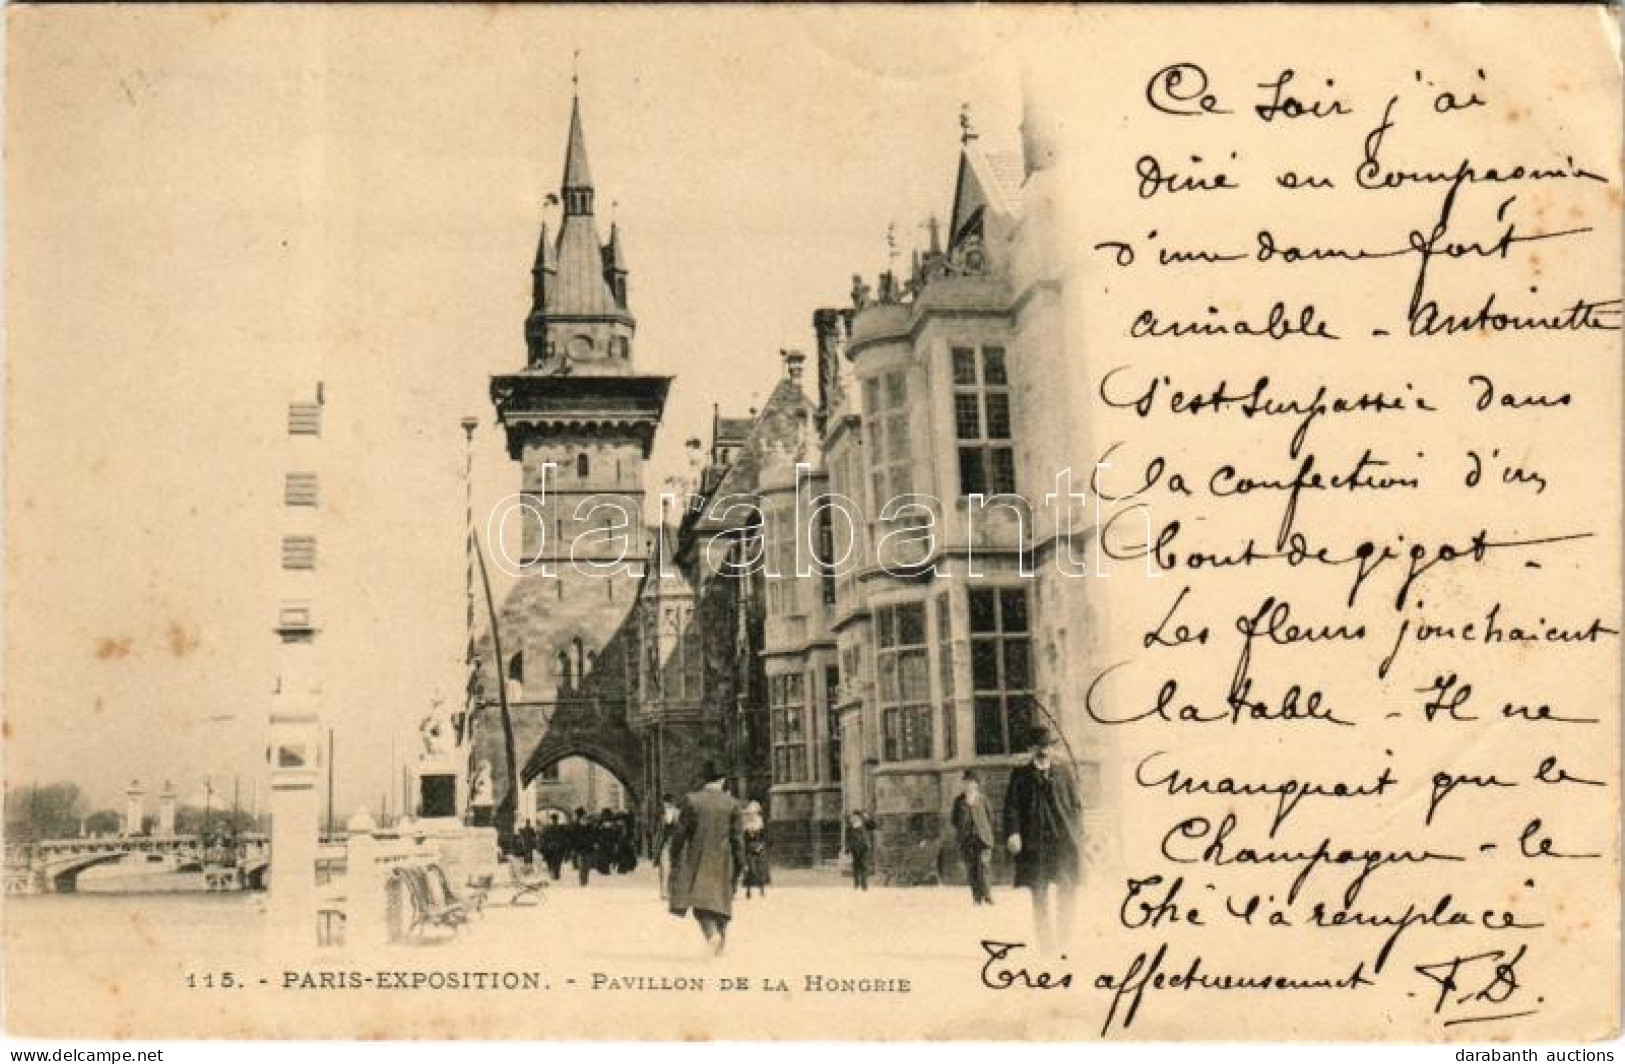 Ce soir j'ai
diné en compagnie
d'une dame fort
aimable - Antoinette
s'est surpassée dans
la confection d'un
bout de gigot -
Les fleurs jonchaient
la table - Il ne
manquait que le
Champagne - le
Thé l'a remplacé
Très affectueusement F.D.
115. - PARIS-EXPOSITION. - PAVILLON DE LA HONGRIE
darabanth
darabanth auctions